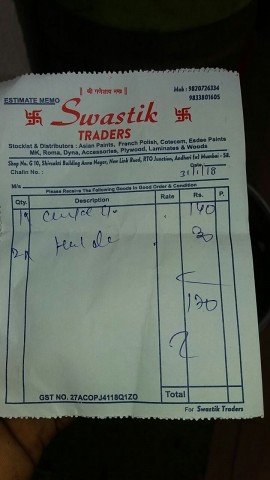 || श्री गणेशाय नमः ||
Mob : 9820726334
9833801605
ESTIMATE MEMO
Swastik
TRADERS
Stockist & Distributors : Asian Paints, French Polish, Colacem, Esdee Paints
MK, Roma, Dyna, Accessories, Plywood, Laminates & Woods
Shop No. G 10, Shivshkti Building Anna Nagar, New Link Road, RTO Junction, Andheri (w) Mumbai - 58.
Challn No. :
Date
31/1/18
M/s
Please Receive The Following Goods In Good Order & Condition
Qty. Description Rate Rs. P.
140
30
170
Total
GST NO. 27ACOPJ4118Q1ZO
For Swastik Traders